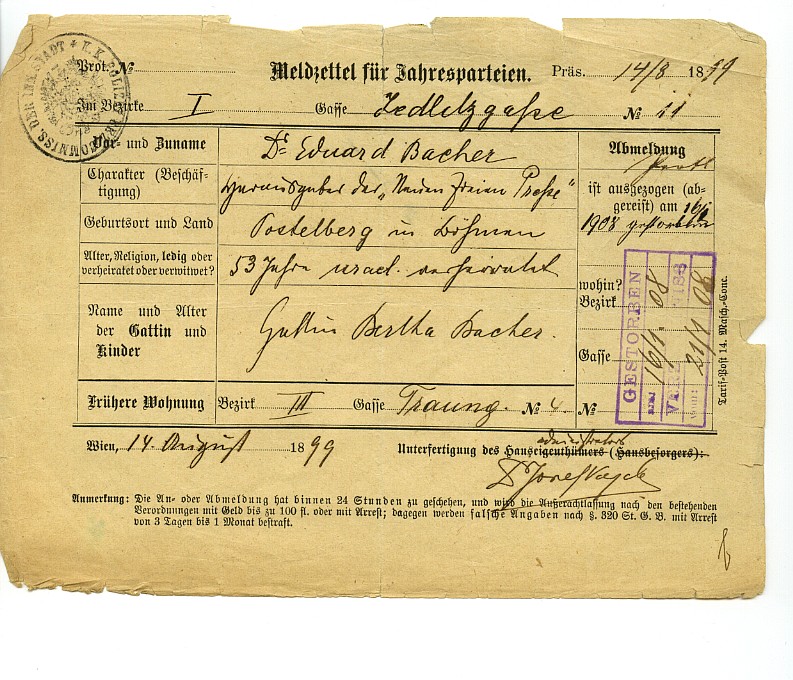 K. K. POLIZEI BEZ. COMMISS. DER INN. STADT
Prot. No
Meldzettel für Jahresparteien.
Präs. 14/8 1899
Im Bezirke I Gasse Zedlitzgaße No 11
Vor- und Zuname
Dr Eduard Bacher
Charakter (Beschäf-
tigung)
Herausgeber der „Neuen Freien Preße"
Geburtsort und Land
Postelberg in Böhmen
Alter, Religion, ledig oder
verheiratet oder verwitwet?
53 Jahre israel. verheiratet
Name und Alter
der Gattin und
Kinder
Gattin Bertha Bacher.
Frühere Wohnung
Bezirk III Gasse Traung. No 4
Abmeldung
ist ausgezogen (ab-
gereist) am 16/1
1908 gestorben
wohin?
Bezirk
Gasse
No
GESTORBEN
16/1. 08
21/1 08
Tarif-Post 14. Masch.-Conc.
Wien, 14. August 1899
Unterfertigung des Hauseigenthümers (Hausbesorgers):
administrators
Dr Josef
Anmerkung: Die An- oder Abmeldung hat binnen 24 Stunden zu geschehen, und wird die Außerachtlassung nach den bestehenden
Verordnungen mit Geld bis zu 100 fl. oder mit Arrest; dagegen werden falsche Angaben nach §. 320 St. G. B. mit Arrest
von 3 Tagen bis 1 Monat bestraft.